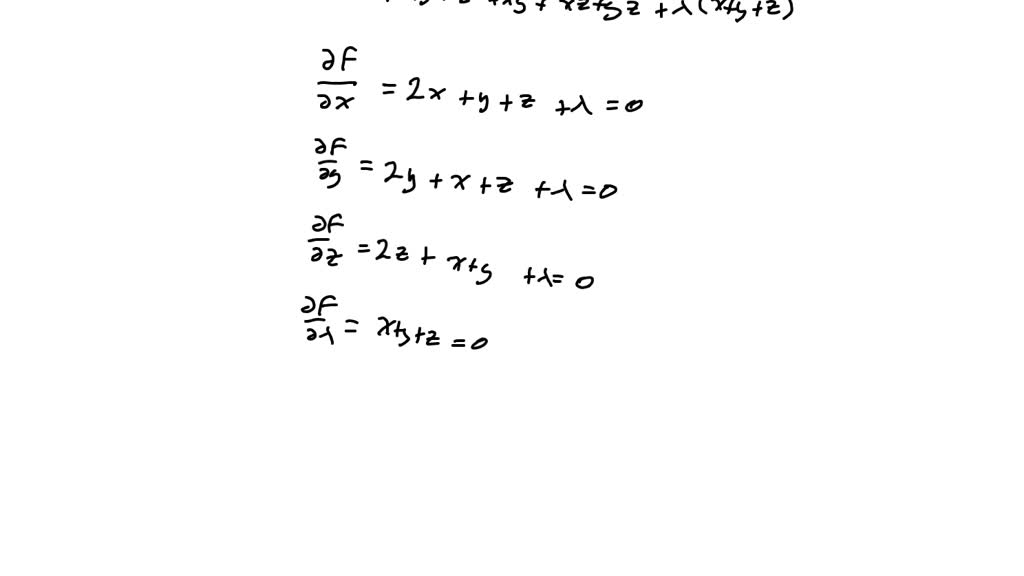 + xy + xz + yz + λ(x+y+z)
∂F/∂x = 2x + y + z + λ = 0
∂F/∂y = 2y + x + z + λ = 0
∂F/∂z = 2z + x+y + λ = 0
∂F/∂λ = x+y+z = 0